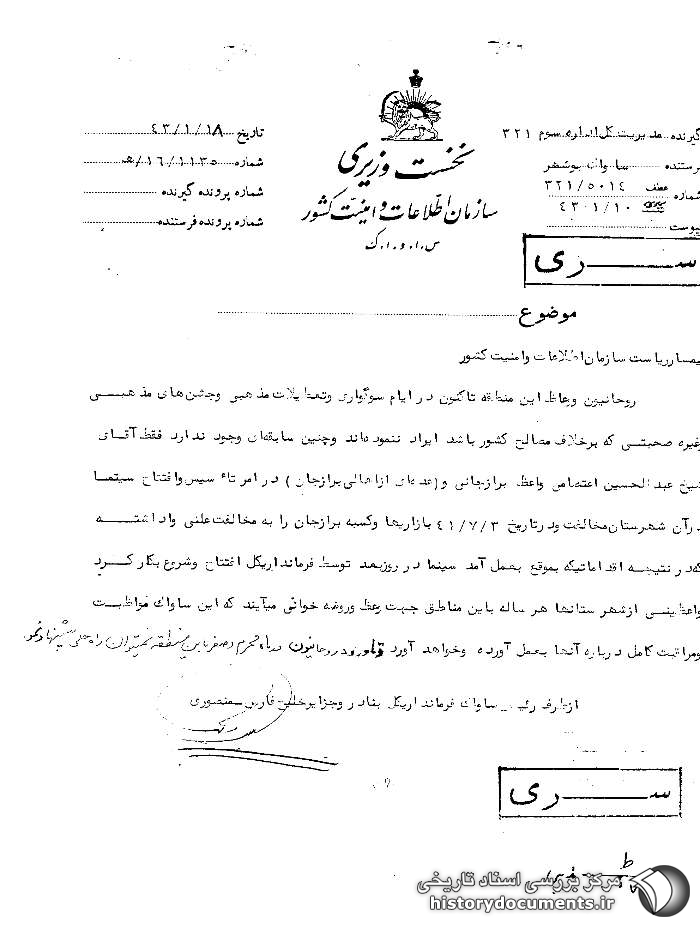 گیرنده مدیریت کل اداره سوم ۳۲۱
فرستنده ساواک بوشهر
شماره عطف ۳۲۱/۵۰۱۴
۴۳۰۱/۱۰
پیوست
نخست وزیری
سازمان اطلاعات و امنیت کشور
س.ا.و.ا.ک
تاریخ ۴۳/۱/۱۸
شماره ۱۶/۱۱۳۵/ه
شماره پرونده گیرنده
شماره پرونده فرستنده
سری
موضوع
تیمسار ریاست سازمان اطلاعات وامنیت کشور
روحانیون وعاظ این منطقه تاکنون در ایام سوگواری وتعطیلات مذهبی وجشن های مذهبی
وغیره صحبتی که برخلاف مصالح کشور باشد ایراد ننموده‌اند وچنین سابقه‌ای وجود ندارد فقط آقای
شیخ عبدالحسین اعتصامی واعظ برازجانی و (عده‌ای ازاهالی برازجان) در امر تاسیس وافتتاح سینما
درآن شهرستان مخالفت ودرتاریخ ۴۱/۷/۳ بازاریها وکسبه برازجان را به مخالفت علنی واداشته
که در نتیجه اقداماتیکه بموقع بعمل آمد سینما در روز بعد توسط فرماندار یکل افتتاح وشروع بکار کرد
واعظینی ازشهرستانها هر ساله باین مناطق جهت وعظ وروضه خوانی میآیند که این ساواک مواظبت
ومراقبت کامل درباره آنها بعمل آورده وخواهد آورد ورود روحانیون درماه محرم وصفر باین منطقه نمیتوان راه حلی پیشنهاد نمود.
ازطرف رئیس ساواک فرمانداریکل بنادر وجزایر خلیج فارس منصوری
سری
مرکز بررسی اسناد تاریخی
historydocuments.ir